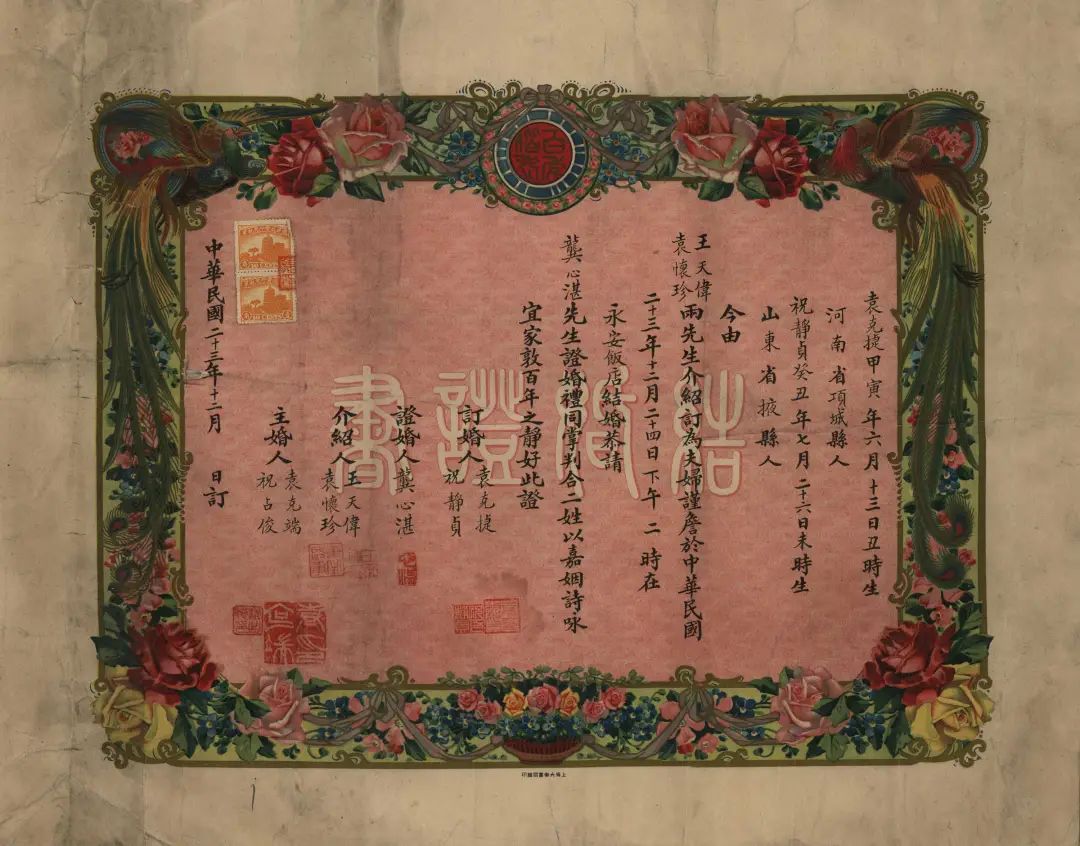 袁克捷甲寅年六月十三日丑時生
河南省項城縣人
祝靜貞癸丑年七月二十六日未時生
山東省掖縣人
今由
王天偉
袁懷珍
兩先生介紹訂為夫婦謹詹於中華民國
二十三年十二月二十四日下午二時在
永安飯店結婚恭請
龔心湛先生證婚禮同掌判合二姓以嘉姻詩咏
宜家敦百年之靜好此證
訂婚人
袁克捷
祝靜貞
證婚人龔心湛
介紹人
王天偉
袁懷珍
主婚人
袁克端
祝占俊
中華民國二十三年十二月 日訂
結婚證書